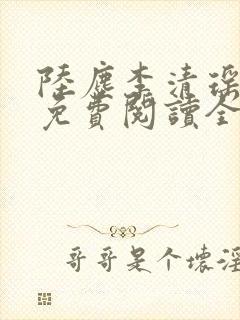 陸塵李清瑤
免費閱讀全
哥哥是个壞淫